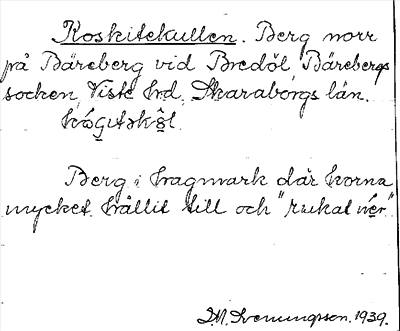 Koskitekullen. Berg norr
på Bäreberg vid Bredöl Bärebergs
socken, Viste hrd. Skaraborgs län.
Berg i hagmark där korna
mycket hållit till och "rukat ner".
J.M. Svenungsson. 1939.